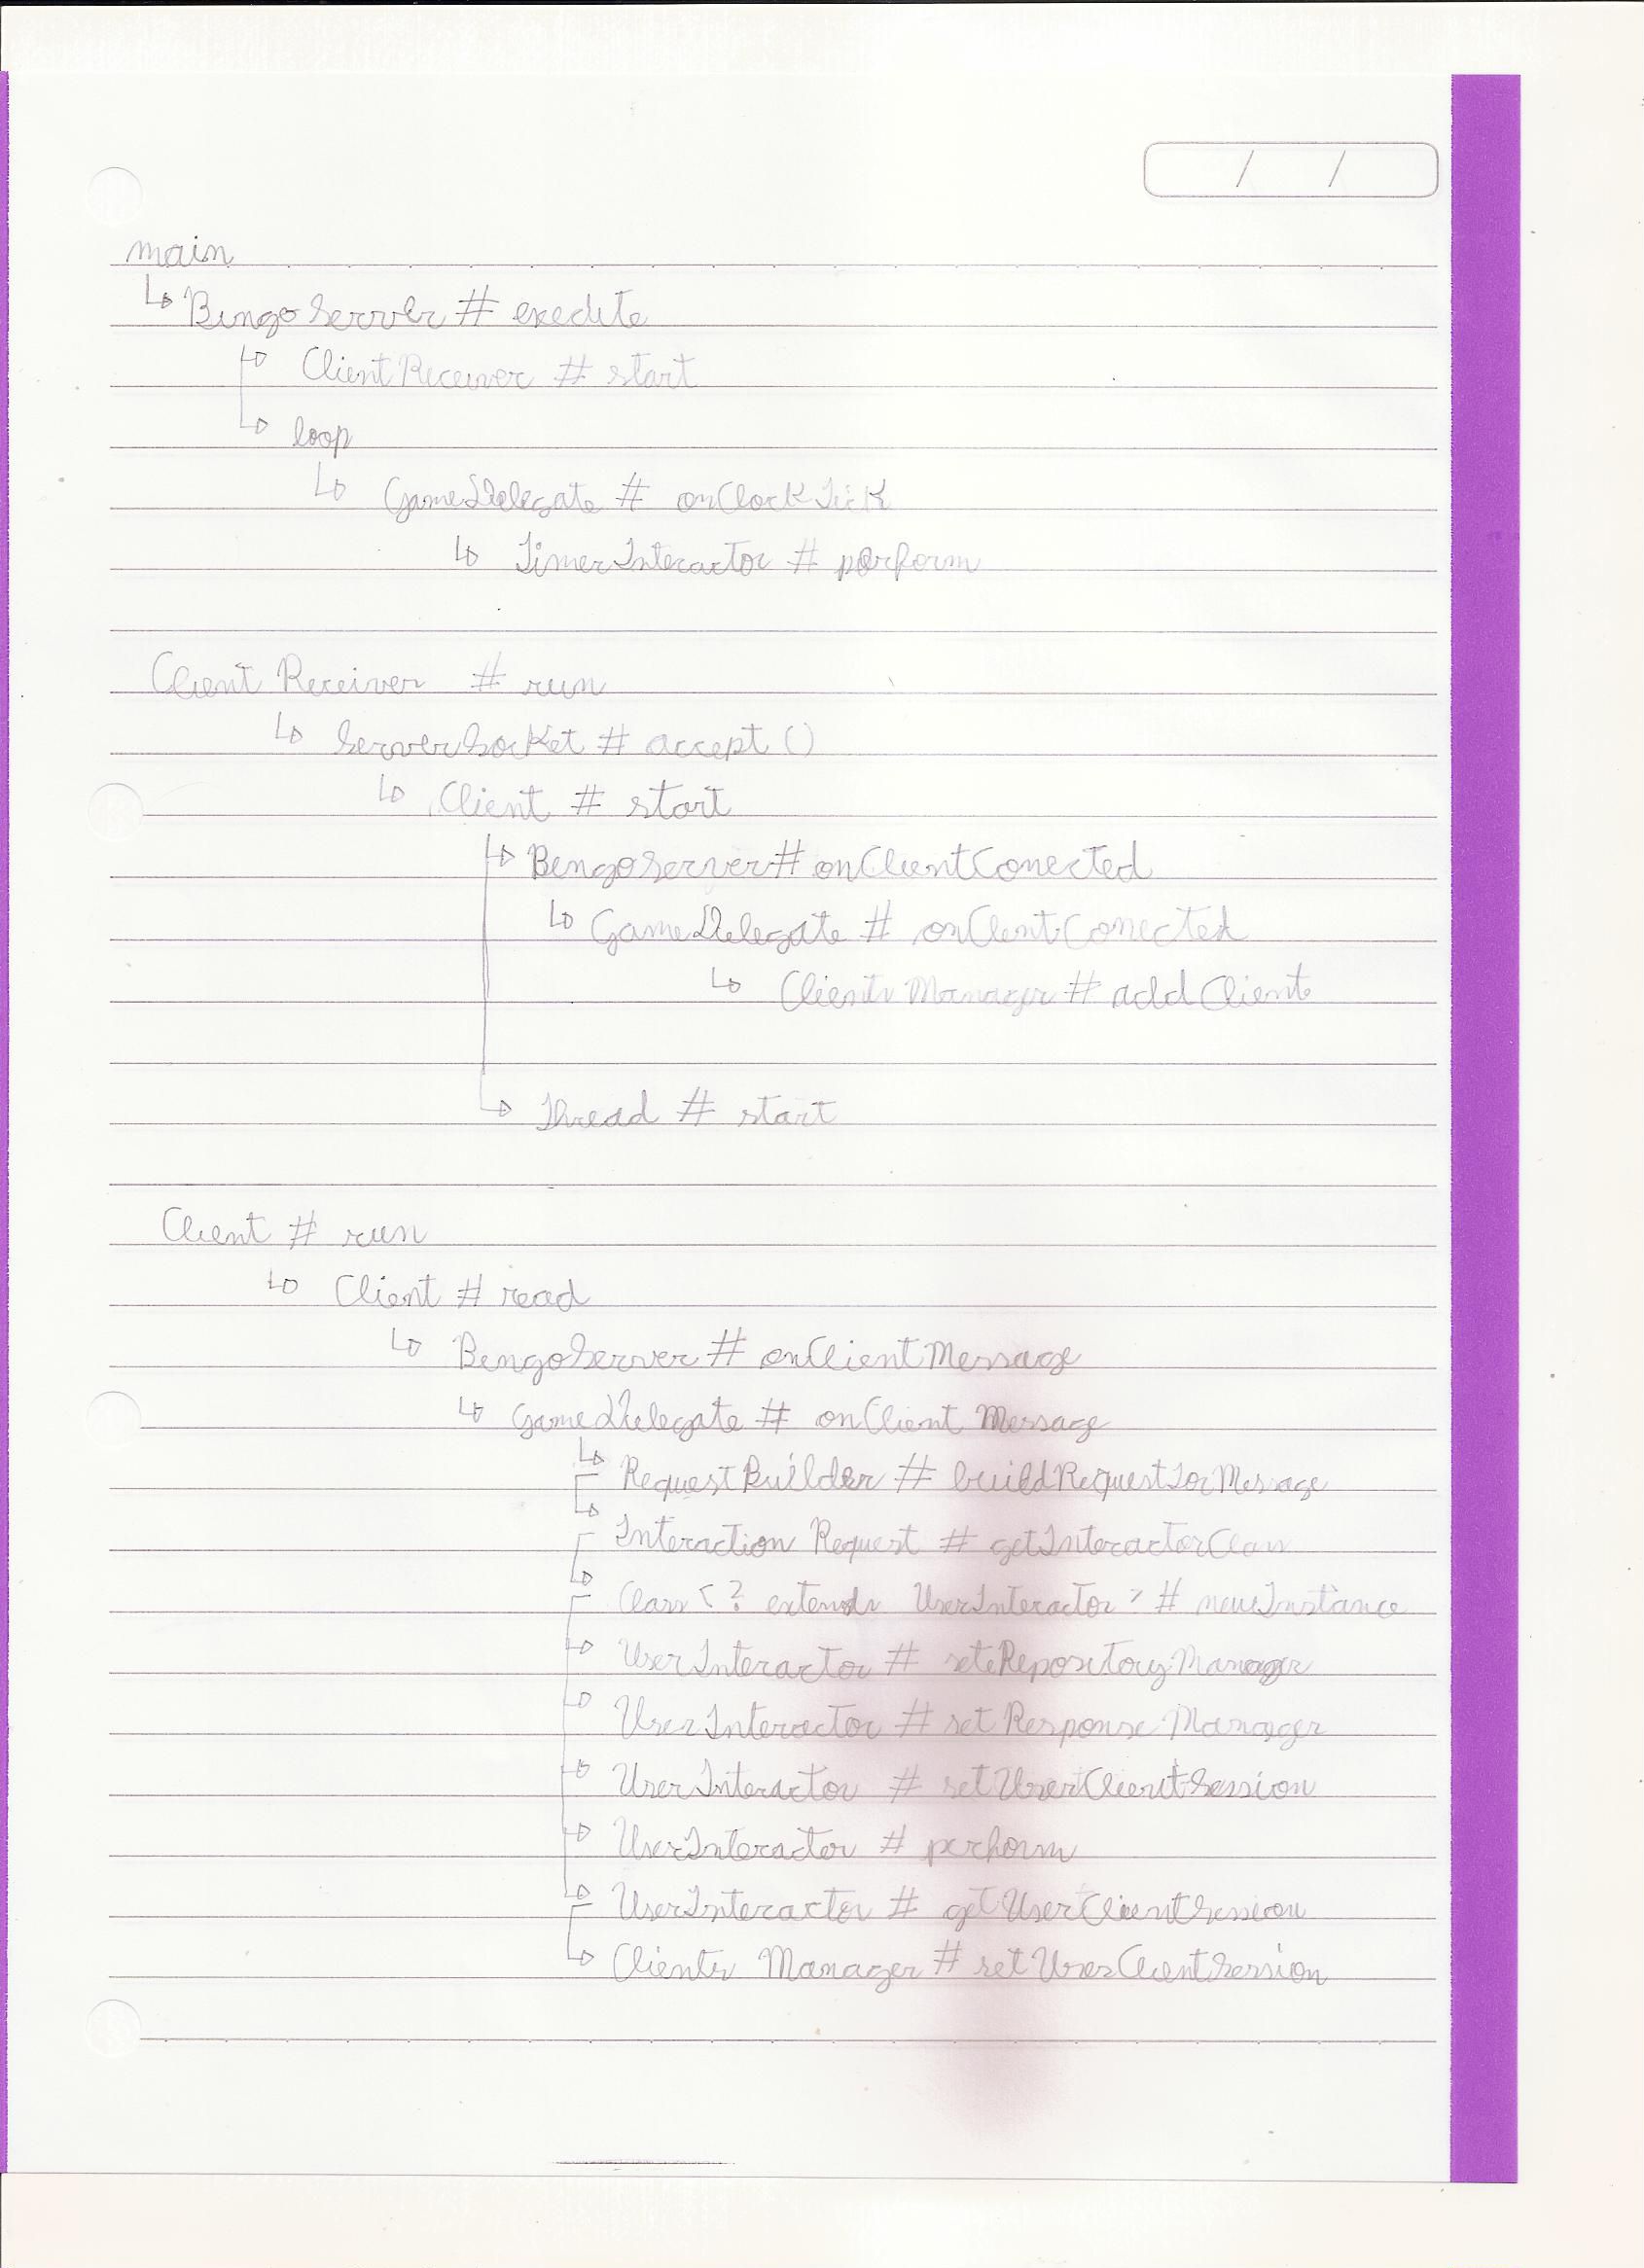 / /
main
↳ BingoServer # execute
↳ ClientReceiver # start
↳ loop
↳ GameDelegate # onClockTick
↳ TimerInteractor # perform
Client Receiver # run
↳ ServerSocket # accept ()
↳ Client # start
↳ BingoServer # onClientConected
↳ GameDelegate # onClientConected
↳ Clients Manager # addClient
↳ Thread # start
Client # run
↳ Client # read
↳ BingoServer # onClientMessage
↳ GameDelegate # onClient Message
↳ RequestBuilder # buildRequestForMessage
↳ Interaction Request # getInteractorClass
↳ Class <? extends UserInteractor> # newInstance
↳ UserInteractor # setRepositoryManager
↳ UserInteractor # setResponseManager
↳ UserInteractor # setUserClientSession
↳ UserInteractor # perform
↳ UserInteractor # getUserClientSession
↳ Clients Manager # setUserClientSession